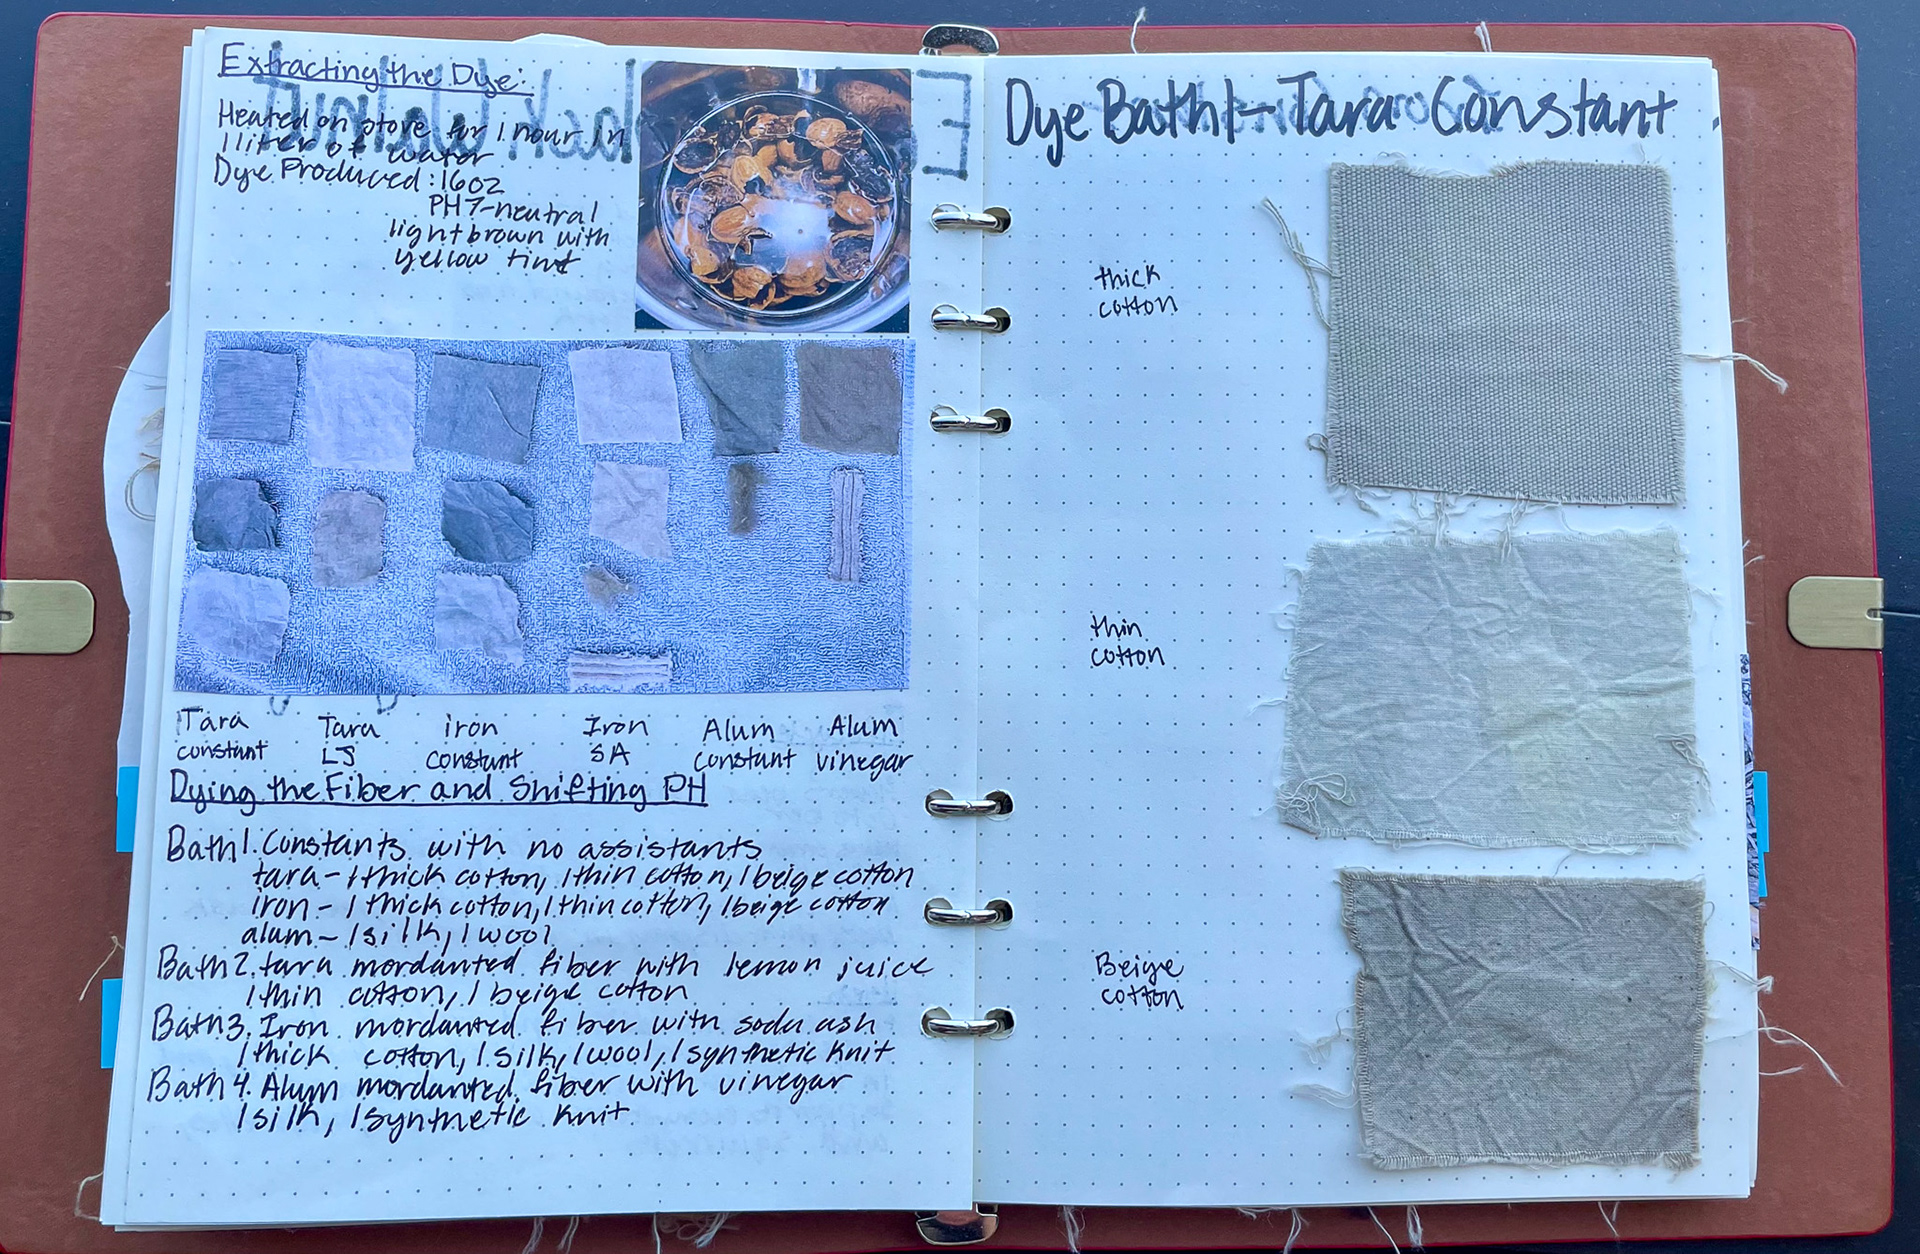 Extracting the Dye:
Heated on stove for 1 hour in
1 liter of water
Dye Produced: 16oz
PH 7-neutral
light brown with
yellow tint
Tara constant
Tara LJ
iron constant
Iron SA
Alum constant
Alum vinegar
Dying the Fiber and Shifting PH
Bath 1. Constants with no assistants
tara- 1 thick cotton, 1 thin cotton, 1 beige cotton
iron- 1 thick cotton, 1 thin cotton, 1 beige cotton
alum- 1 silk, 1 wool
Bath 2. tara mordanted fiber with lemon juice
1 thin cotton, 1 beige cotton
Bath 3. Iron mordanted fiber with soda ash
1 thick cotton, 1 silk, 1 wool, 1 synthetic knit
Bath 4. Alum mordanted fiber with vinegar
1 silk, 1 synthetic knit
Dye Bath 1- Tara Constant
thick
cotton
thin
cotton
Beige
cotton